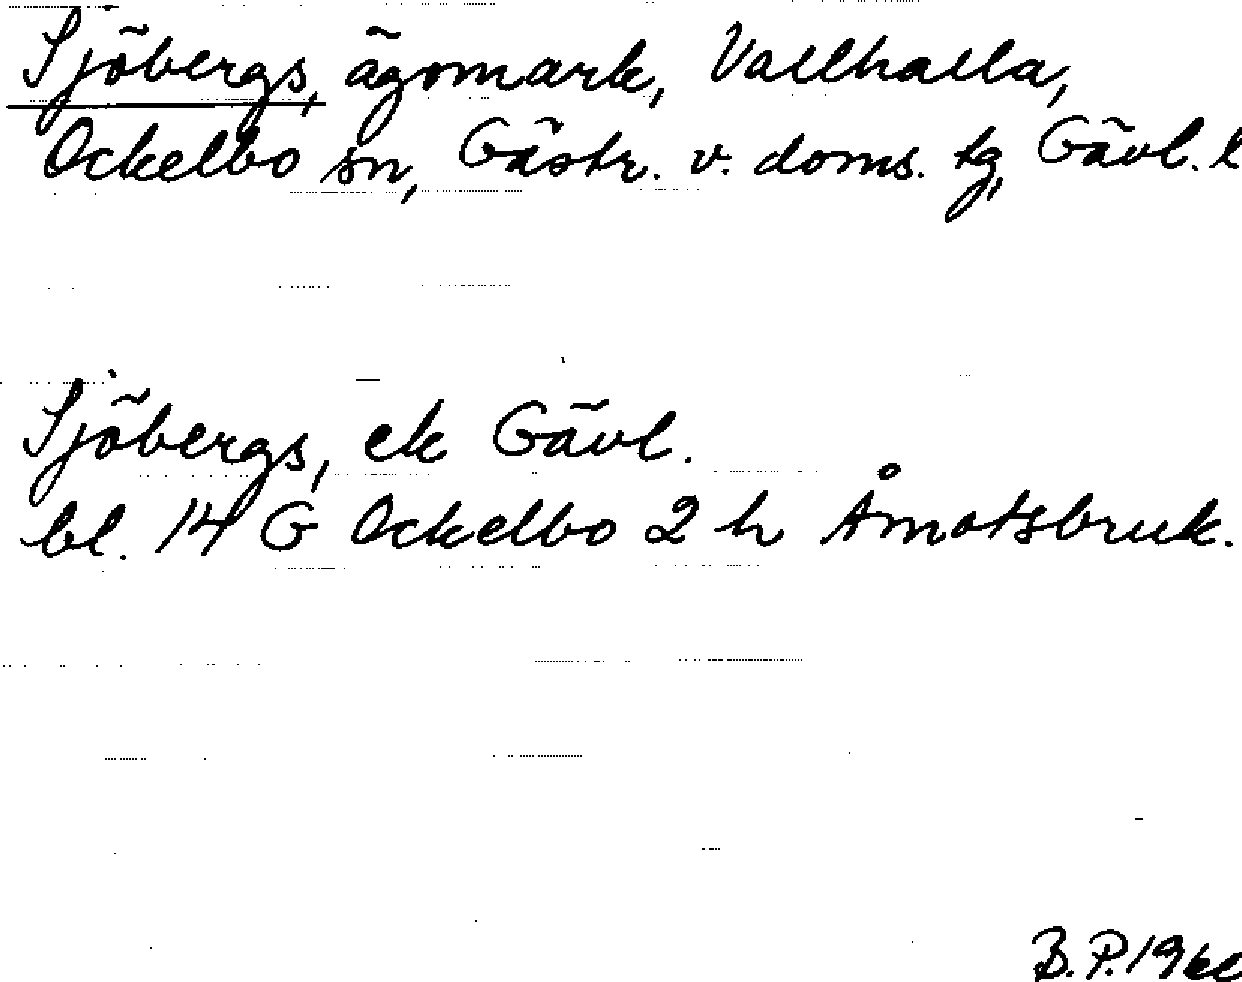 Sjöbergs, ägomark, Vallhalla,
Ockelbo sn, Gästr. v. doms. tg, Gävl. l
Sjöbergs, ek Gävl.
bl. 14 G Ockelbo 2 h Åmotsbruk.
B. P.